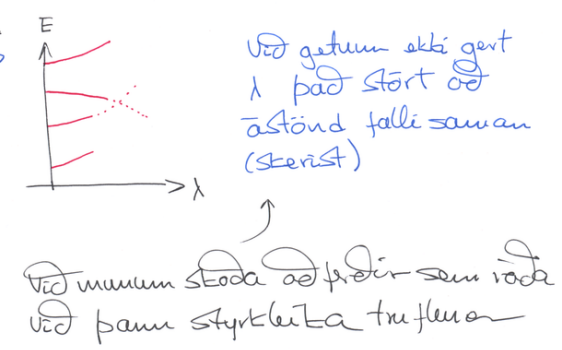 E
Við getum ekki gert
λ það stórt að
ástönd falli saman
(skerist)
λ
Við munum skoða aðferðir sem ráða
við þann styrkleika truflunar